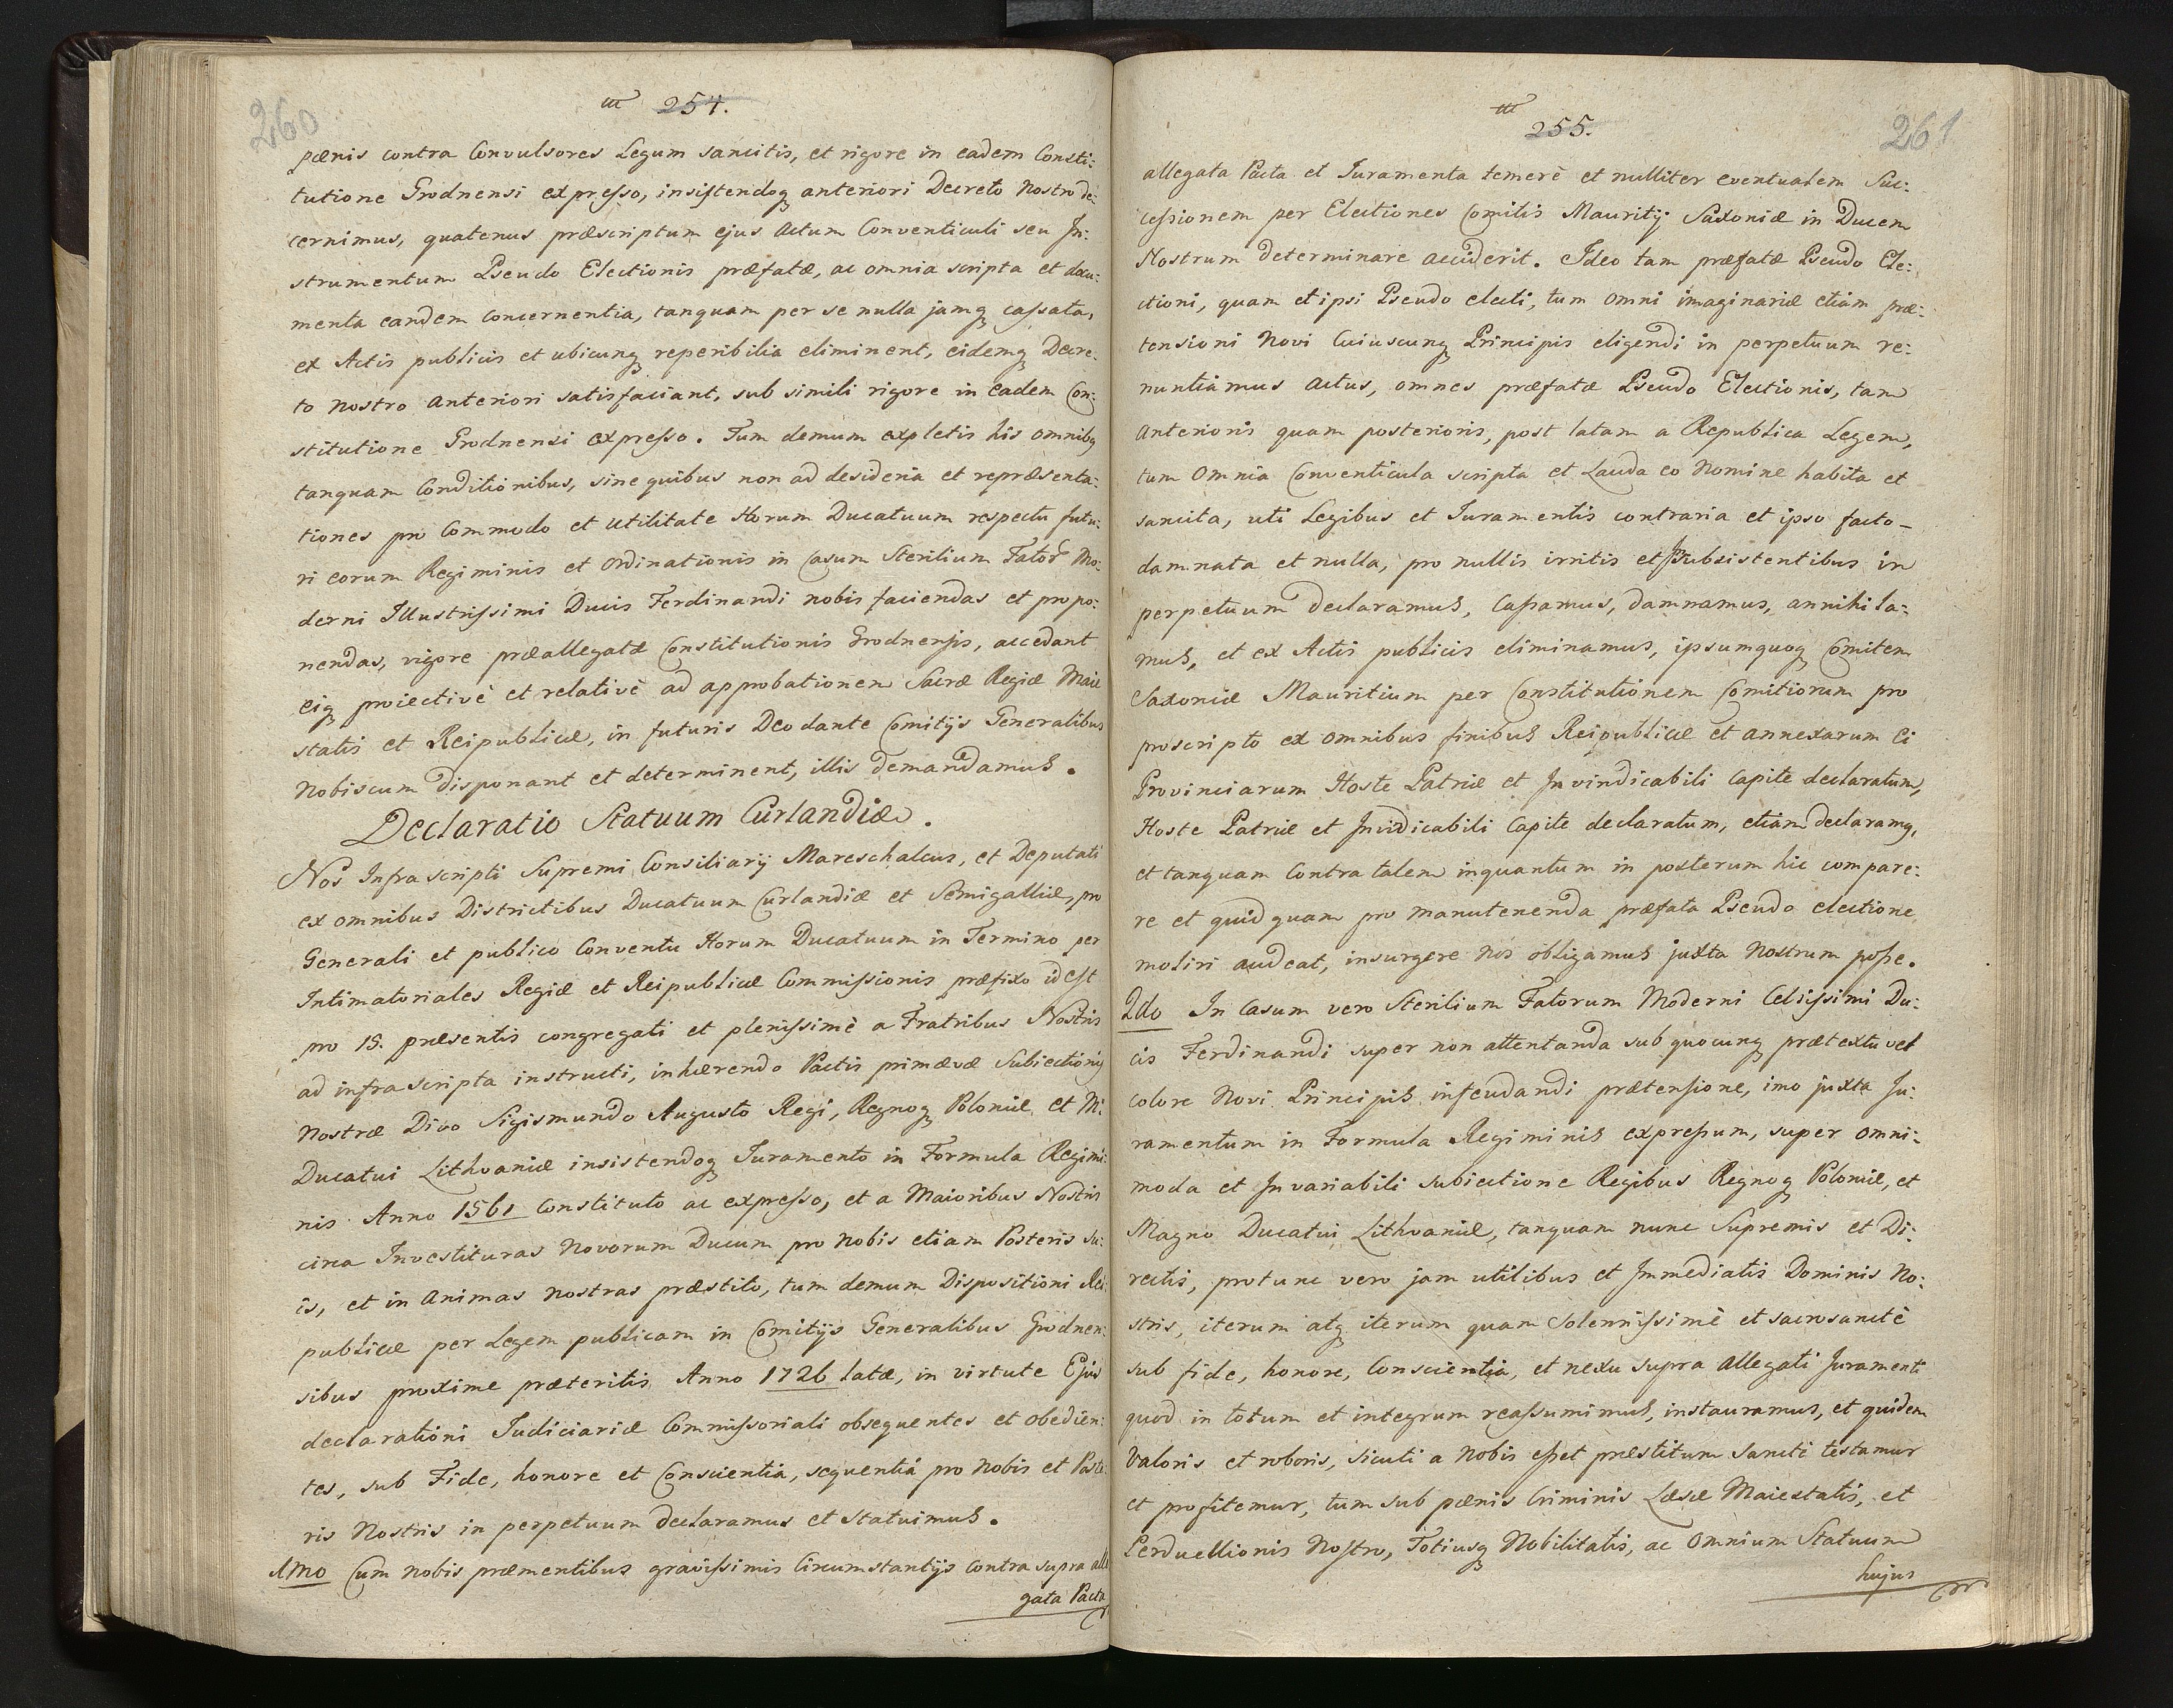 260
254.
pœnis contra Convulsores Legum sancitis, et rigore in eadem Consti:
tutione Grodnensi expresso, insistendoq anteriori Decreto Nostro de:
cernimus, quatenus præscriptum ejus Actum Conventiculi seu In:
strumentum Pseudo Electionis præfatæ, ac omnia scripta et docu:
menta eandem concernentia, tanquam per se nulla jamq cassata,
ex Actis publicis et ubicunq reperibilia eliminent, eidemq Decre:
to nostro anteriori satisfaciant, sub simili rigore in eadem Con:
stitutione Grodnensi expresso. Tum demum expletis his omnibq
tanquam Conditionibus, sine quibus non ad desideria et repræsenta:
tiones pro Commodo et utilitate Horum Ducatuum respectu futu:
ri eorum Regiminis et Ordinationis in Casum Sterilium Fator Mo:
derni Illustrissimi Ducis Ferdinandi nobis faciendas et propo:
nendas, vigore præallegatæ Constitutionis Grodnensis, accedant
eiq proiectivè et relativè ad approbationem Sacræ Regiæ Maie
statis et Reipublicæ, in futuris Deo dante Comitijs Generalibus
Nobiscum disponant et determinent, illis demandamus.
Declaratio Statuum Curlandiæ.
Nos Infra scripti Supremi Consiliarij Mareschalcus, et Deputati
ex omnibus Districtibus Ducatuum Curlandiæ et Semigalliæ, pro
Generali et publico Conventu Horum Ducatuum in Termino per
Intimatoriales Regiæ et Reipublicæ Commissionis præfixo id est
pro 15. præsentis congregati et plenissimè a Fratribus Nostris
ad infra scripta instructi, inhærendo Pactis primævæ Subiectionis
Nostræ Divo Sigismundo Augusto Regi, Regnoq Poloniæ et M:
Ducatui Lithvaniæ insistendoq Iuramento in Formula Regimi:
nis Anno 1561 Constituto ac expresso, et a Maioribus Nostris
circa Investituras Novorum Ducum pro nobis etiam Posteris su:
is, et in Animas nostras præstito, tum demum Dispositioni Rei:
publicæ per Legem publicam in Comitijs Generalibus Grodnen:
sibus proxime præteritis Anno 1726 latæ, in virtute Ejus
declarationi Iudiciariæ Commissoriali obsequentes et obedien:
tes, sub Fide, honore et Conscientia, sequentiâ pro Nobis et Poste:
ris Nostris in perpetuum declaramus et statuimus.
1mo Cum nobis præmentibus gravissimis Circumstantijs contra supra alle
gata Pacta
261
255.
allegata Pacta et Iuramenta temerè et nulliter eventualem Suc:
cessionem per Electiones Comitis Mauritij Saxoniæ in Ducem
Nostrum determinare acciderit. Ideo tam præfatæ Pseudo Ele:
ctioni, quam et ipsi Pseudo electi, tum omni imaginariæ etiam præ:
tensioni Novi Cuiuscunq Principis eligendi in perpetuum re:
nuntiamus actus, omnes præfatæ Pseudo Electionis, tam
anterioris quam posterioris, post latam a Republica Legem,
tum Omnia Conventicula scripta et Lauda eo Nomine habita et
sancita, uti Legibus et Iuramentis contraria et ipso facto
damnata et nulla, pro nullis irritis et Insubsistentibus in
perpetuum declaramus, Cassamus, damnamus, annihila:
mus, et ex Actis publicis eliminamus, ipsumquoq Comitem
Saxoniæ Mauritium per Constitutionem Comitiorum pro
proscripto ex omnibus finibus Reipublicæ et annexarum Ei
Provinciarum Hoste Patriæ et Invindicabili Capite declaratum,
Hoste Patriæ et Invidicabili Capite declaratum, etiam declaramq,
et tanquam Contra talem inquantum in posterum hic compare:
re et quidquam pro manutenenda præfata Pseudo electione
moliri audeat, insurgere nos obligamus juxta Nostrum posse.
2do In Casum vero Sterilium Fatorum Moderni Celsissimi Du:
cis Ferdinandi super non attentanda sub quocunq prætextu vel
colore Novi Principis infeudandi prætensione, imo juxta Ju:
ramentum in Formula Regiminis expressum, super omni:
moda et Invariabili subiectione Regibus Regnoq Poloniæ, et
Magno Ducatui Lithvaniæ, tanquam nunc Supremis et Di:
rectis, protunc vero jam utilibus et Immediatis Dominis No:
stris, iterum atq iterum quam Solennissimè et sacrosanctè
sub fide, honore, Conscientia, et nexu supra allegati Juramenti
quod in totum et integrum reassumimus, instauramus, et quidem
Valoris et roboris, sicuti a Nobis esset præstitum Sancte testamur
et profitemur, tum sub pœnis Criminis Læsæ Maiestatis, et
Perduellionis Nostro, Totiusq Nobilitatis, ac Omnium Statuum
hujus